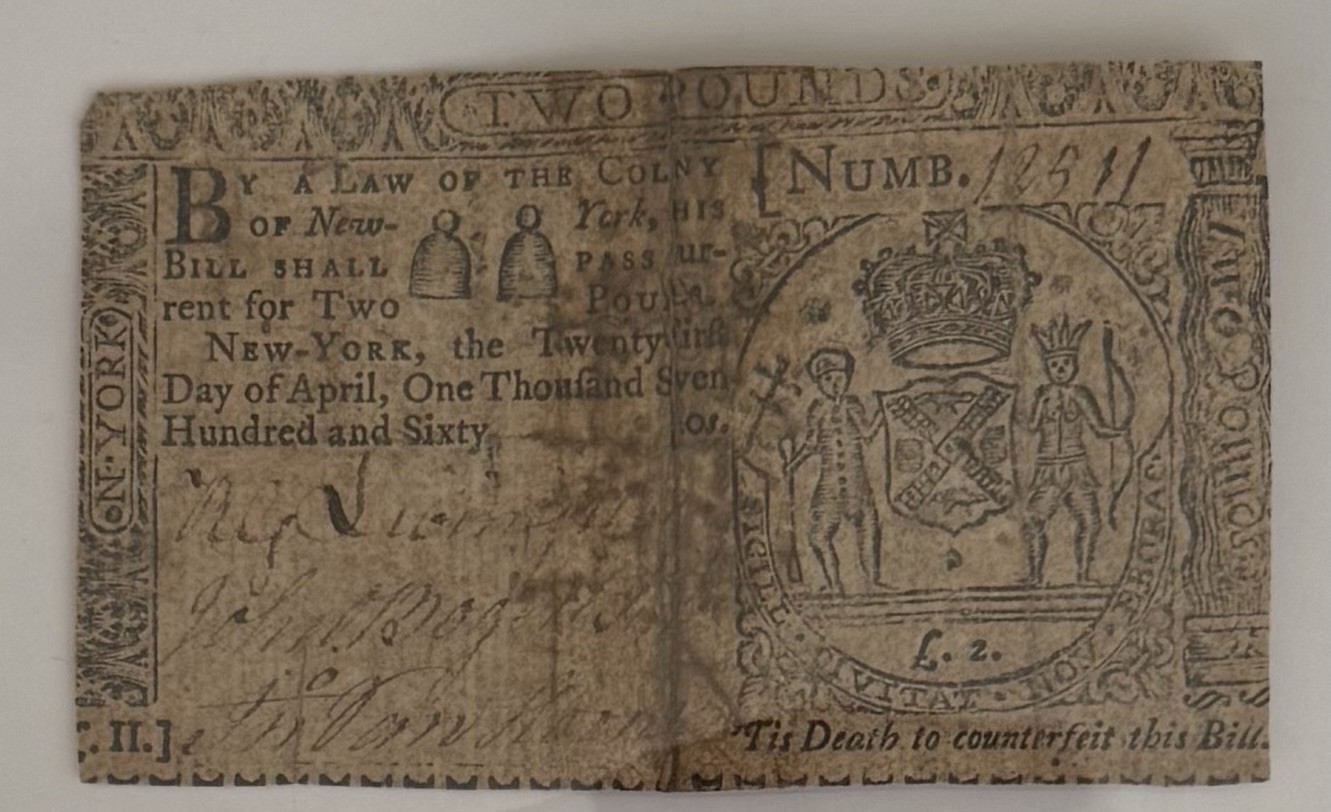 TWO POUNDS
BY A LAW OF THE COLNY
OF New- York, HIS
BILL SHALL PASS ur-
rent for Two POU
NEW-YORK, the Twenty firſt
Day of April, One Thouſand Sven
Hundred and Sixty os.
[NUMB. 12511
N·YORK
Two Pounds
SIGILL CIVITAT · NOV EBORAC
£. 2.
. II.]
'Tis Death to counterfeit this Bill.